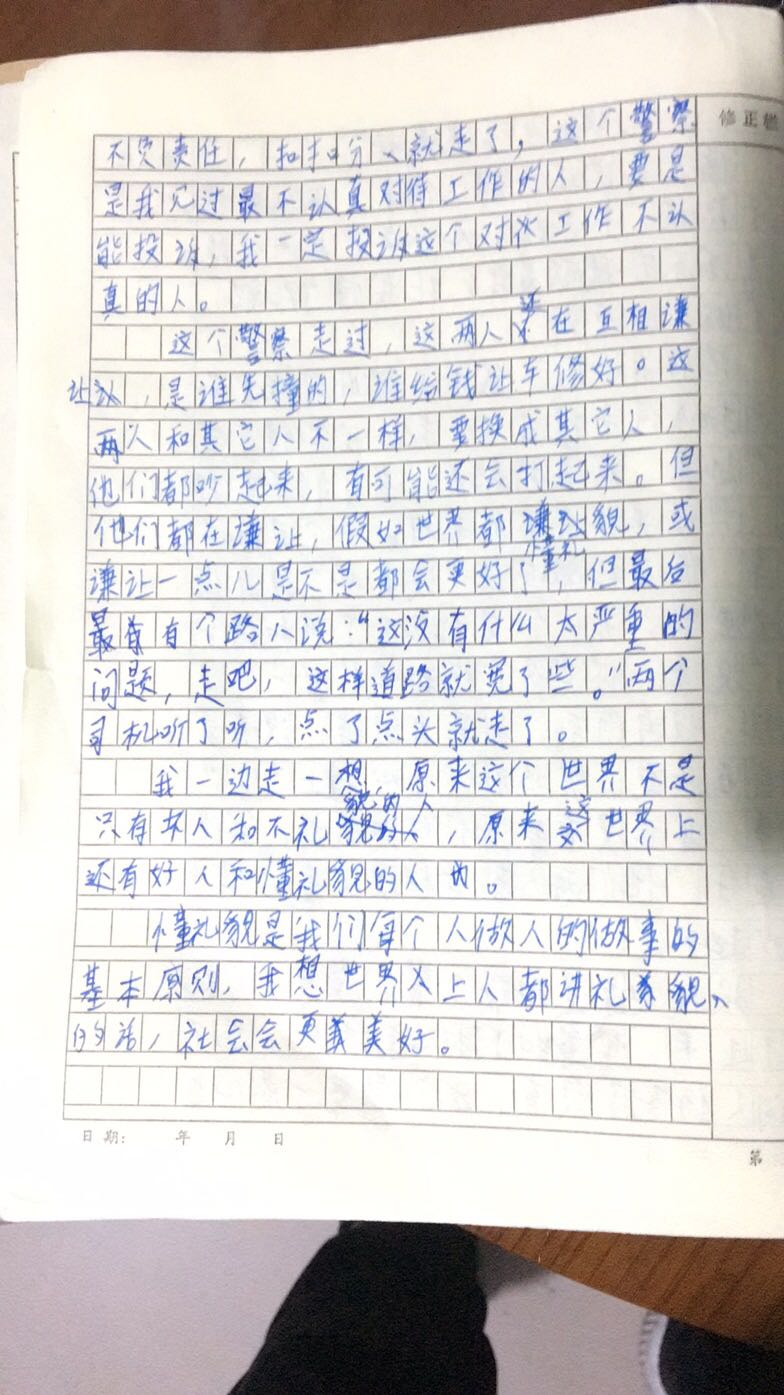 修正栏
不负责任，扣扣分、就走了，这个警察
是我见过最不认真对待工作的人，要是
能投诉，我一定投诉这个对待工作不认
真的人。
这个警察走过，这两人还在互相谦
让认，是谁先撞的，谁给钱让车修好。这
两人和其它人不一样，要换成其它人，
他们都吵起来，有可能还会打起来。但
他们都在谦让，假如世界都懂礼貌，或
谦让一点儿是不是都会更好了，但最后
最后有个路人说：“这没有什么太严重的
问题，走吧，这样道路就宽了些。”两个
司机听了听，点了点头就走了。
我一边走一想，原来这个世界不是
只有坏人和不礼貌的人，原来这世界上
还有好人和懂礼貌的人的。
懂礼貌是我们每个人做人的做事的
基本原则，我想世界上人都讲礼貌
的话，社会会更美好。
日期： 年 月 日
第